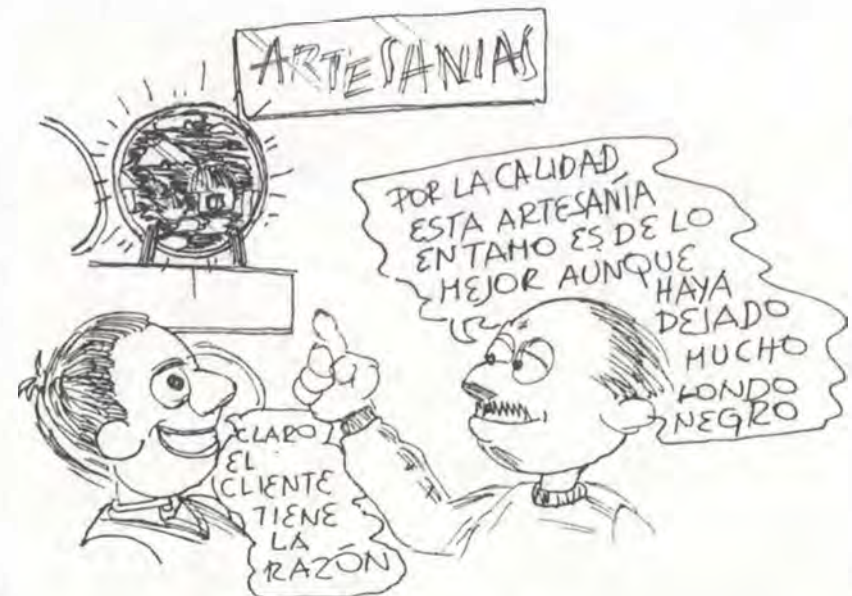 ARTESANIAS
POR LA CALIDAD
ESTA ARTESANÍA
EN TAMO ES DE LO
MEJOR AUNQUE
HAYA
DEJADO
MUCHO
FONDO
NEGRO
CLARO
EL
CLIENTE
TIENE
LA
RAZÓN